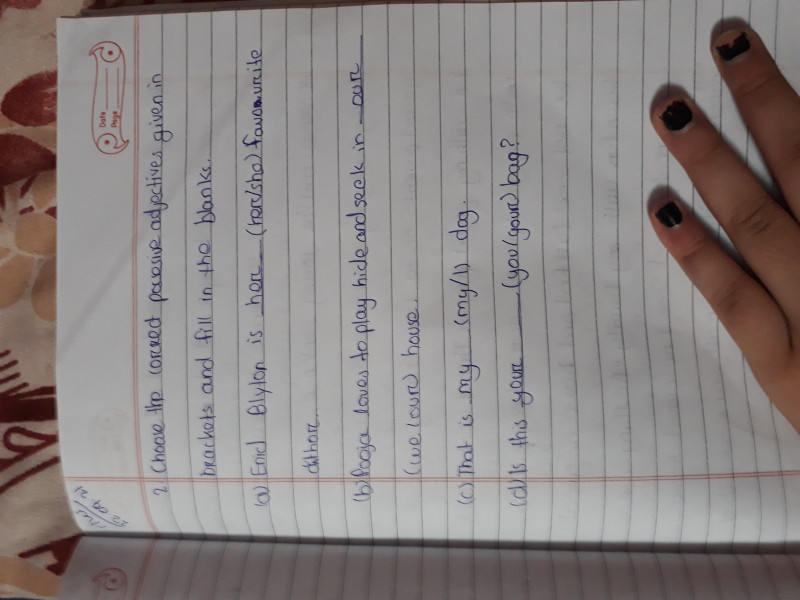 Date
Page
2 Choose the correct possesive adjectives given in
brackets and fill in the blanks.
(a) Enid Blyton is her (her/sha) favourite
author.
(b) Pooja loves to play hide and seek in our
(we/our) house.
(c) That is my (my/I) dog.
(d) Is this your (you/your) bag?